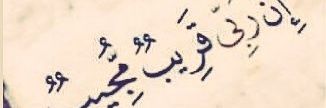 إِن رَبِّى قَرِيبٌ مُّجِيبٌ